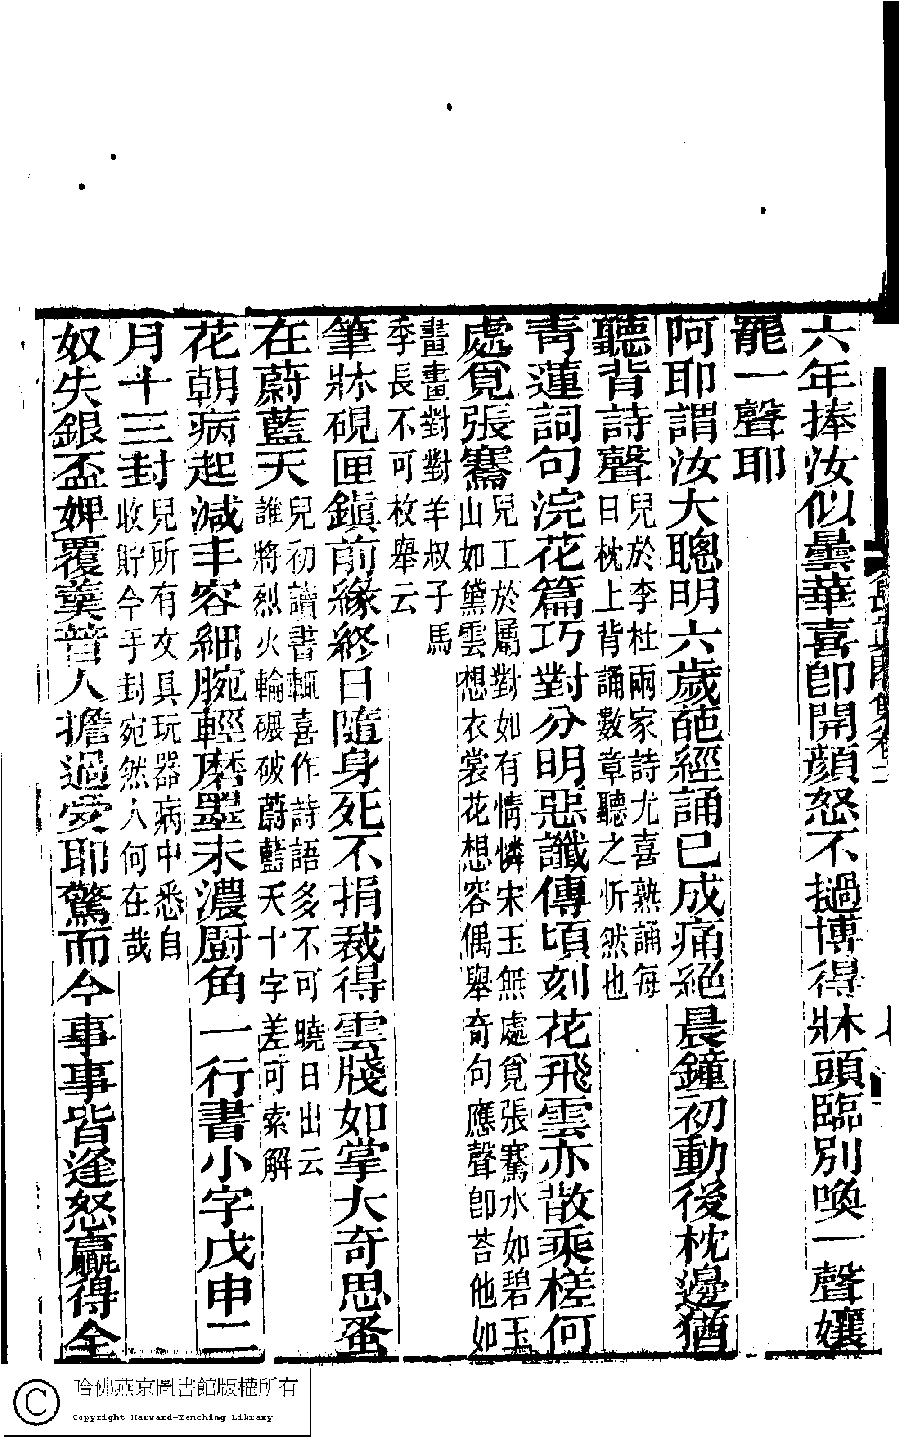 六年捧汝似曇華喜卽開顏怒不撾博得牀頭臨別喚一聲孃
罷一聲耶
阿耶謂汝大聰明六歲葩經誦已成痛絕晨鐘初動後枕邊猶
聽背詩聲
兒於李杜兩家詩尤喜熟誦每
日枕上背誦數章聽之忻然也
靑蓮詞句浣花篇巧對分明惡讖傳頃刻花飛雲亦散乘槎何
處覓張騫
兒工於屬對如有情憐宋玉無處覓張騫水如碧玉
山如黛雲想衣裳花想容偶舉奇句應聲卽荅他如
畫畫對對羊叔子馬
季長不可枚舉云
筆牀硯匣鎭前緣終日隨身死不捐裁得雲牋如掌大奇思蚤
在蔚藍天
兒初讀書輒喜作詩語多不可曉日出云
誰將烈火輪碾破蔚藍天十字差可索解
花朝病起減丰容細腕輕磨墨未濃厨角一行書小字戊申二
月十三封
兒所有文具玩器病中悉自
收貯今手封宛然人何在哉
奴失銀盃婢覆羹昔人擔過受耶驚而今事事皆逢怒贏得全
哈佛燕京圖書館版權所有
Copyright Harvard-Yenching Library